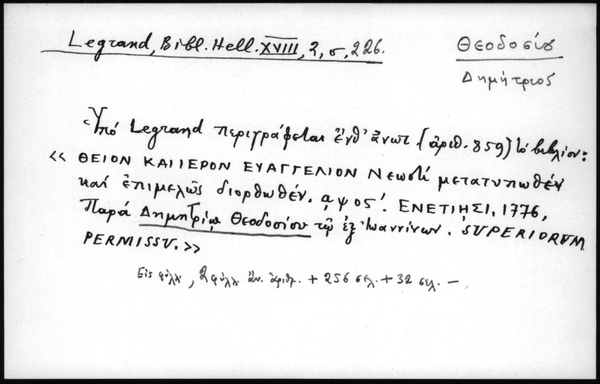 Legrand, Bibl. Hell. XVIII, 2, σ, 226.
Θεοδοσίου
Δημήτριος
Ὑπό Legrand περιγράφεται ἔνθ' ἄνωτ (ἀριθ. 859) τό βιβλίον:
« ΘΕΙΟΝ ΚΑΙ ΙΕΡΟΝ ΕΥΑΓΓΕΛΙΟΝ Νεωστί μετατυπωθέν
καί ἐπιμελῶς διορθωθέν. αψοϛ'. ΕΝΕΤΙΗΣΙ, 1776,
Παρά Δημητρίῳ Θεοδοσίου τῷ ἐξ Ἰωαννίνων. SUPERIORUM
PERMISSU. »
Εἰς φύλλ, 2 φύλλ ἄν. ἀριθμ. + 256 σελ. + 32 σελ. —